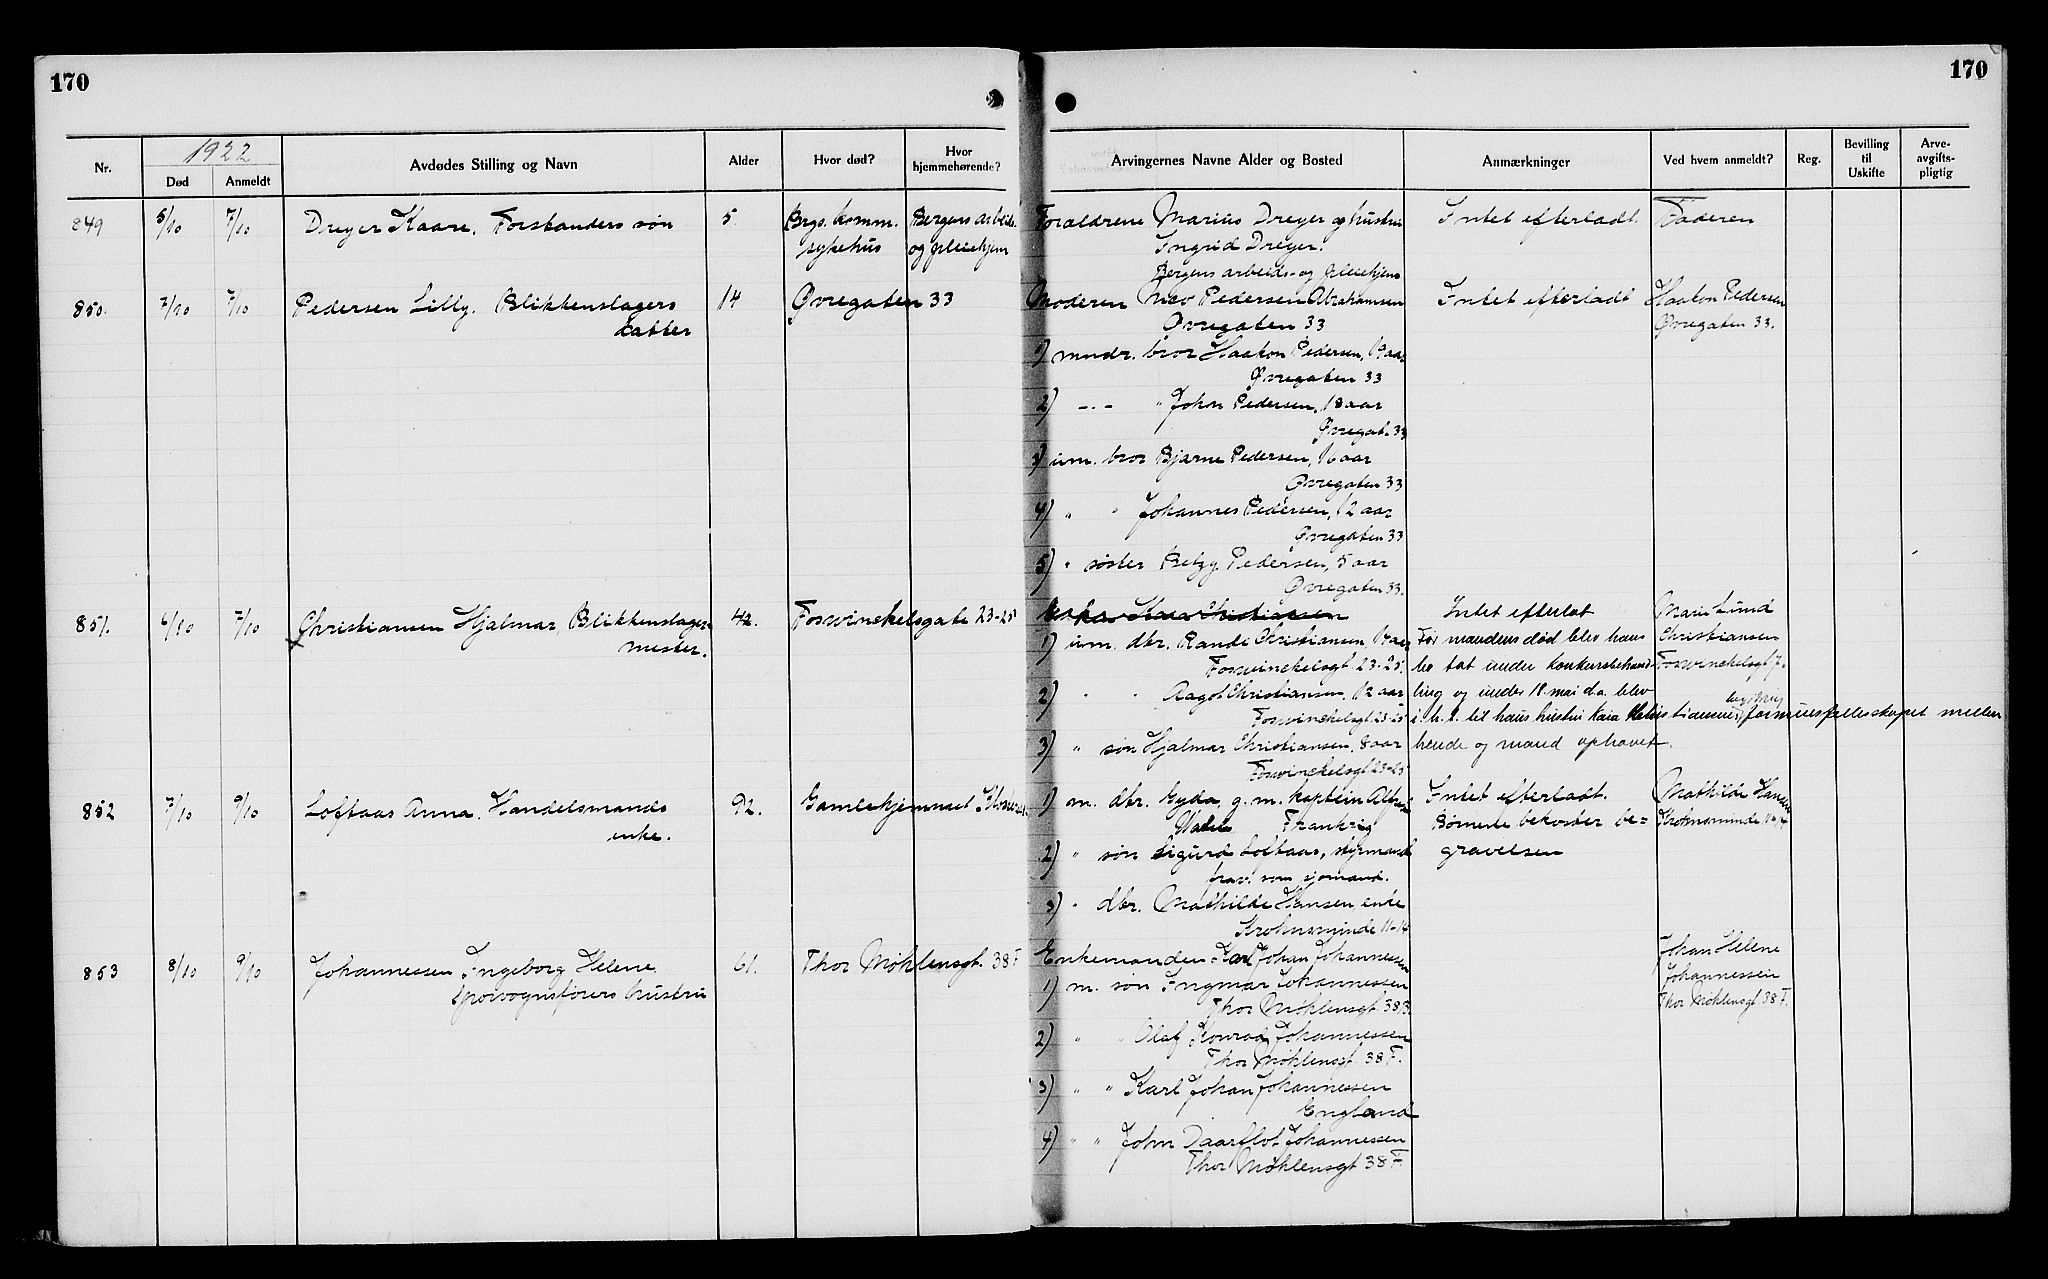 170
170
Nr.
1922
Død
Anmeldt
Avdødes Stilling og Navn
Alder
Hvor død?
Hvor hjemmehørende?
Arvingernes Navne Alder og Bosted
Anmærkninger
Ved hvem anmeldt?
Reg.
Bevilling til Uskifte
Arve-avgifts-pligtig
849 5/10 7/10 Dreyer Kaare. Forstanders søn 5. Brgs. komm. Bergens arbeids- Foraldrene Marius Dreyer og hustru Intet efterladt. Faderen
sykehus og pleiehjem Ingrid Dreyer.
Bergens arbeids- og pleiehjem
850. 7/10 7/10 Pedersen Lilly. Blikkenslagers 14 Øvregaten 33 Moderen Pedersen Abrahamsen Intet efterladt Haakon Pedersen
datter Øvregaten 33 Øvregaten 33.
1) mndr. bror Haakon Pedersen, 19 aar
Øvregaten 33
2) -.- " Johan Pedersen, 18 aar
Øvregat. 33
3) um. bror Bjarne Pedersen, 16 aar
Øvregaten 33
4) " " Johannes Pedersen, 12 aar
Øvregaten 33
5) " søster Betzy Pedersen, 5 aar
Øvregaten 33.
851. 6/10 7/10 Christiansen Hjalmar, Blikkenslager- 42. Fosvinckelsgate 23-25 Enke Kaia Christiansen Intet efterlat Marie Lund
mester. 1) um. dtr. Rande Christiansen, 17 aar Før mandens død blev hans Christiansen
Fosvinckelsgt 23-25. bo tat under konkursbehand- Fosvinckelsgt 7.
2) " " Aagot Christiansen, 12 aar ling og under 18. mai d.a. blev
Fosvinckelsgt 23-25 i h. t. til hans hustru Kaia bevilling formuesfellesskapet mellem
3) " søn Hjalmar Christiansen, 8 aar hende og mand ophævet.
Fosvinckelsgt 23-25
852 7/10 9/10 Loftaas Anna. Handelsmands 92. Gamlehjemmet 1) m. dtr. Gyda, g. m. kaptein Intet efterladt. Mathilde Hansen
enke. Frankrig Børnene bekoster be= Krohnsminde 11-14
2) " søn Sigurd Loftaas, styrmand gravelsen
frav. som sjømand.
3) " dtr. Mathilde Hansen enke
Krohnsminde 11-14
853 8/10 9/10 Johannessen Ingeborg Helene. 61. Thor Møhlensgt. 38 F Enkemanden Karl Johan Johannessen Johan Helene
Sporvognsførers hustru 1) m. søn Ingmar Johannessen Johannessen
Thor Møhlensgt 38 B. Thor Møhlensgt 38 F.
2) " " Olaf Konrad Johannessen
Thor Møhlensgt. 38 F.
3) " " Karl Johan Johannessen
England
4) " " John Daarflot Johannessen
Thor Møhlensgt 38 F.